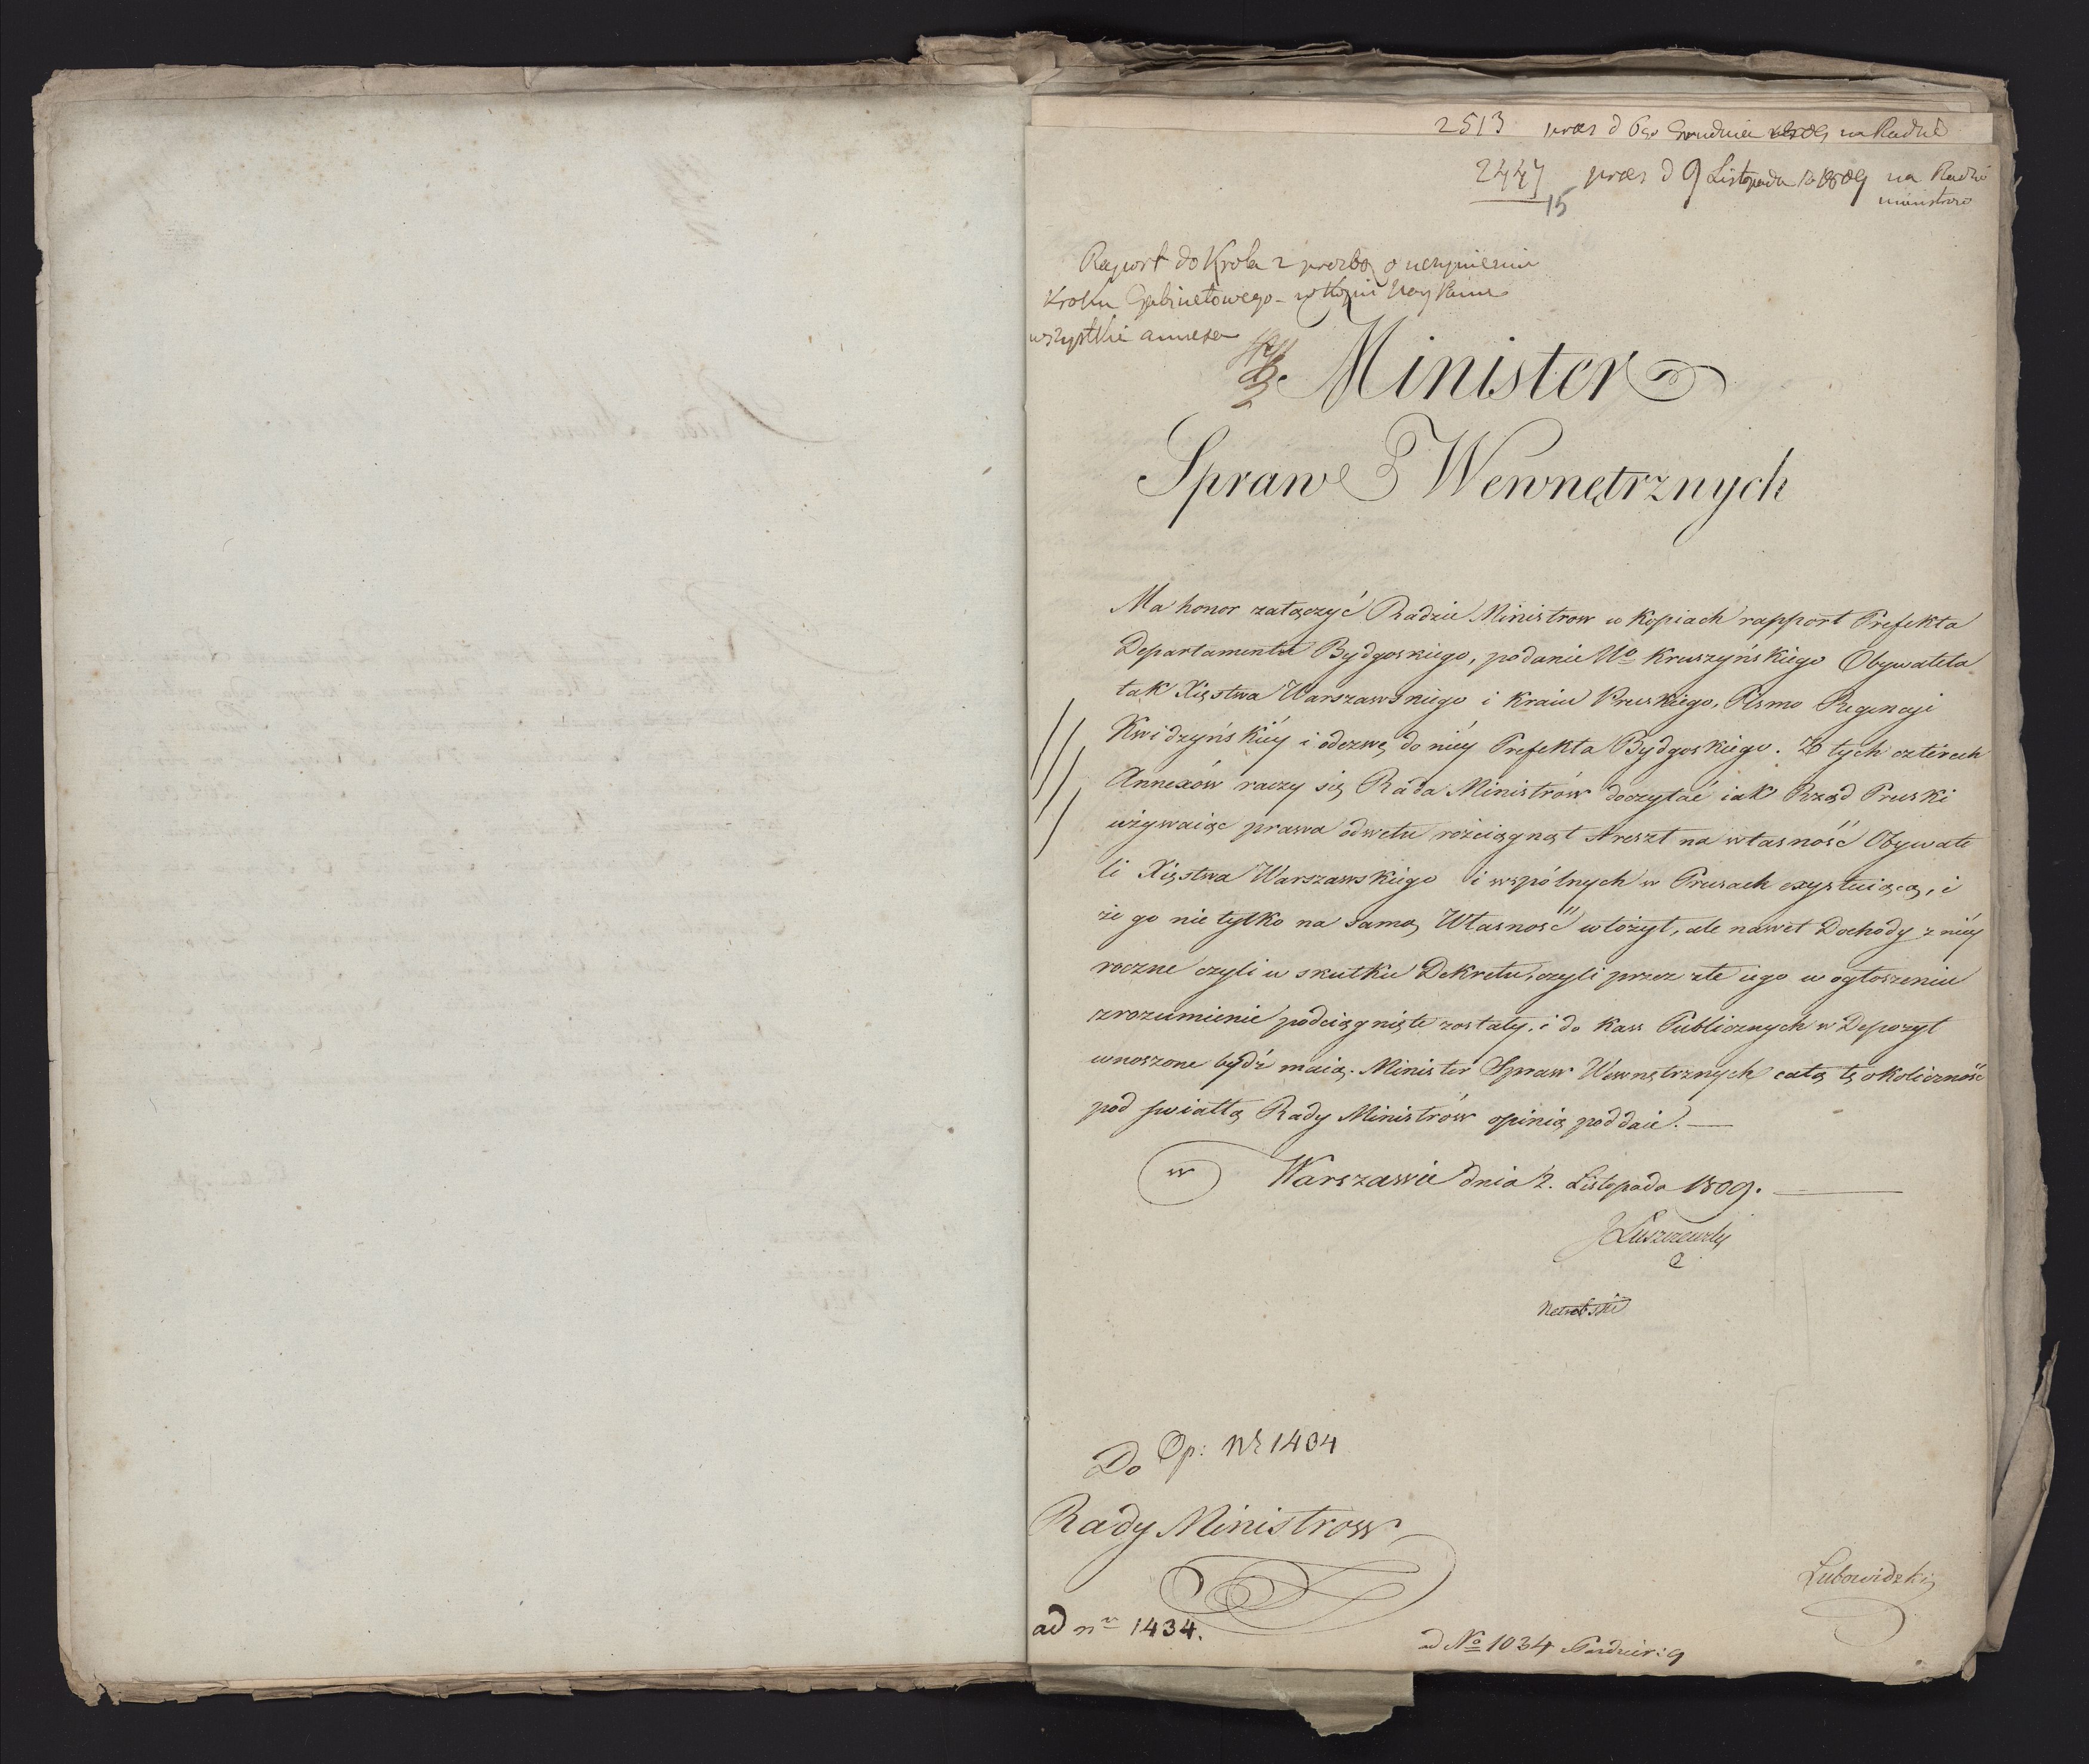 2513 præs d 6go Grudnia 1809 na Radzie
2447 præs d 9 Listopada 1809 na Radzie
15 ministrow
Raport do Krola z prozbą o uczynienie
Kroku Gabinetowego - w kopii
wszystkie annexa
Minister
Spraw Wewnętrznych
Ma honor załączyć Radzie Ministrow w Kopiach rapport Prefekta
Departamentu Bydgoskiego, podanie Wo Kruszyńskiego Obywatela
tak Xięstwa Warszawskiego i Kraiu Pruskiego, Pismo Regencyi
Kwidzyńskiéy i odezwę do niéy Prefekta Bydgoskiego. Z tych cztérech
Annexów raczy się Rada Ministrów doczytać iak Rząd Pruski
używaiąc prawa odwetu rozciągnął Areszt na własność Obywate
li Xięstwa Warszawskiego i wspólnych w Prusach exystuiącą, i
że go nie tylko na samą Własność włożył, ale nawet Dochody z niéy
roczne czyli w skutku Dekretu, czyli przez złe iego w ogłoszeniu
zrozumienie podciągnięte zostały, i do Kass Publicznych w Depozyt
wnoszone bydź maią. Minister Spraw Wewnętrznych całą tę okoliczność
pod światłą Rady Ministrów opinią poddaie. —
w Warszawie dnia 2. Listopada 1809.
J Łuszczewski
Do Op: Nr 1434
Rady Ministrow
Lubowidzki
ad nr 1434.
ad No 1034 Pazdzier: 9